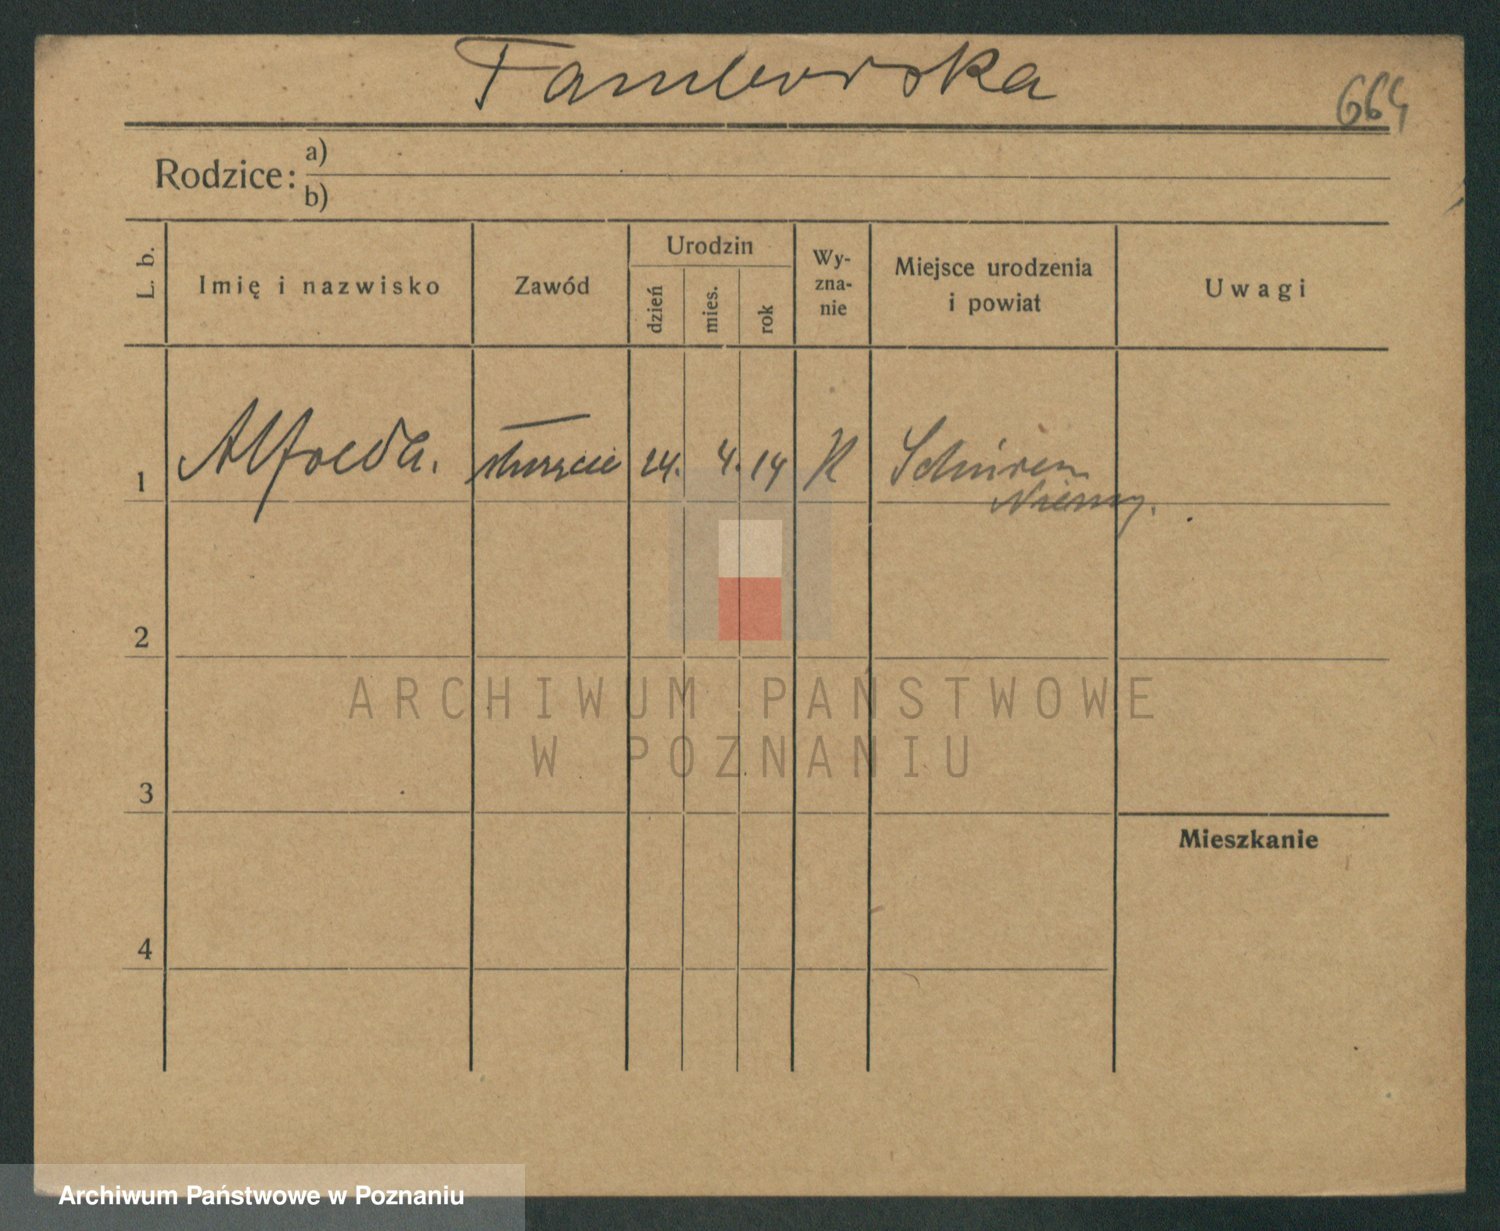 Tamborska
664
Rodzice: a)
b)
L. b.
Imię i nazwisko
Zawód
Urodzin
dzień
mies.
rok
Wy-
zna-
nie
Miejsce urodzenia
i powiat
Uwagi
1 Alfreda. 24. 4. 14 K Schüren
Niemcy.
2
ARCHIWUM PAŃSTWOWE
W POZNANIU
3
Mieszkanie
4
Archiwum Państwowe w Poznaniu